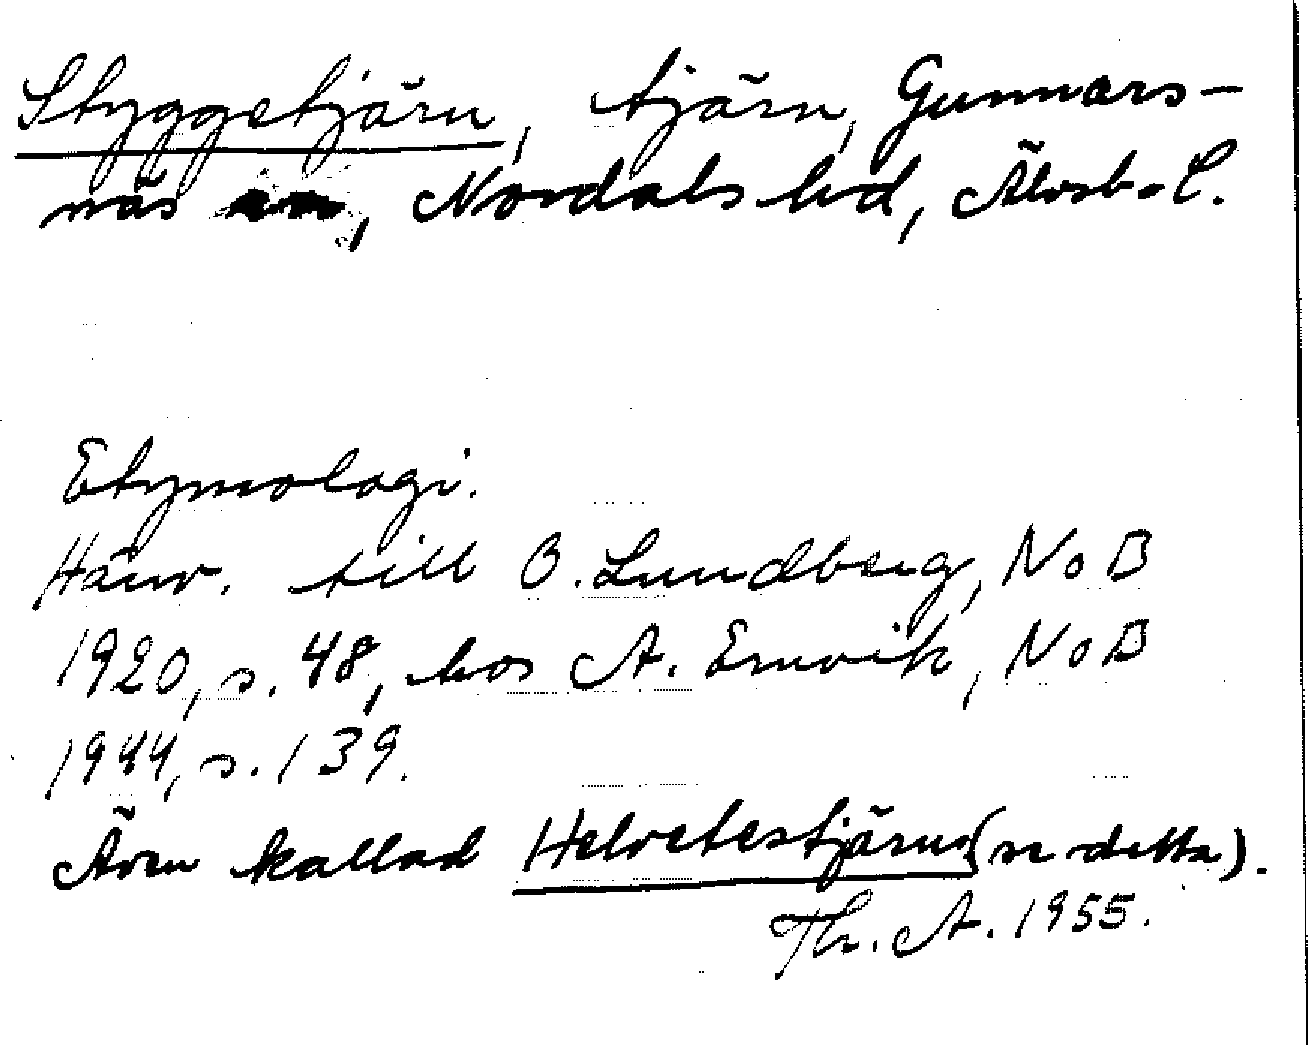 Styggetjärn, tjärn, Gunnars-
näs, Nordals hd, Älvsb. l.
Etymologi.
Hänv. till O. Lundberg, NoB
1920, s. 48, hos A. Ernvik, NoB
1944, s. 139.
Även kallad Helvetestjärn (se detta).
Th. A. 1955.